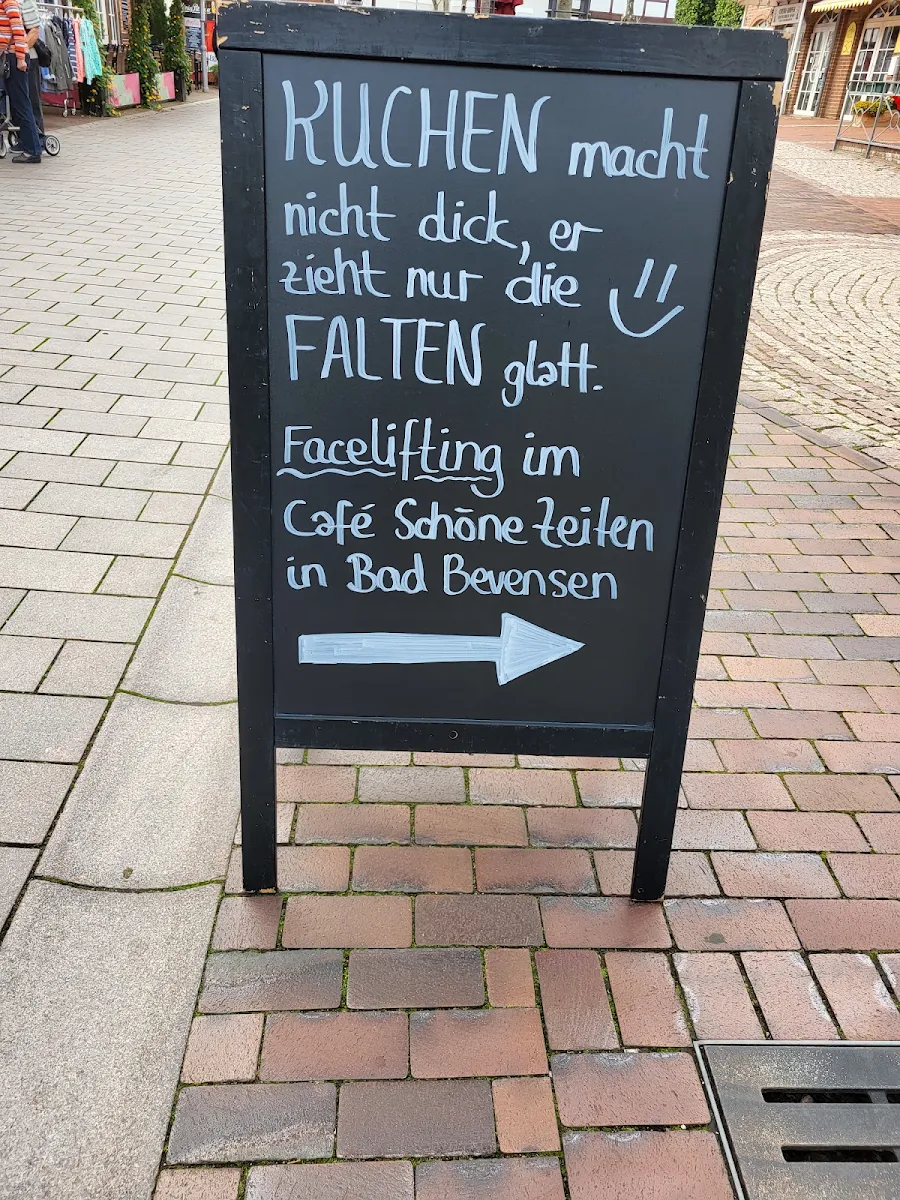 KUCHEN macht
nicht dick, er
zieht nur die
FALTEN glatt.
Facelifting im
Café Schöne Zeiten
in Bad Bevensen